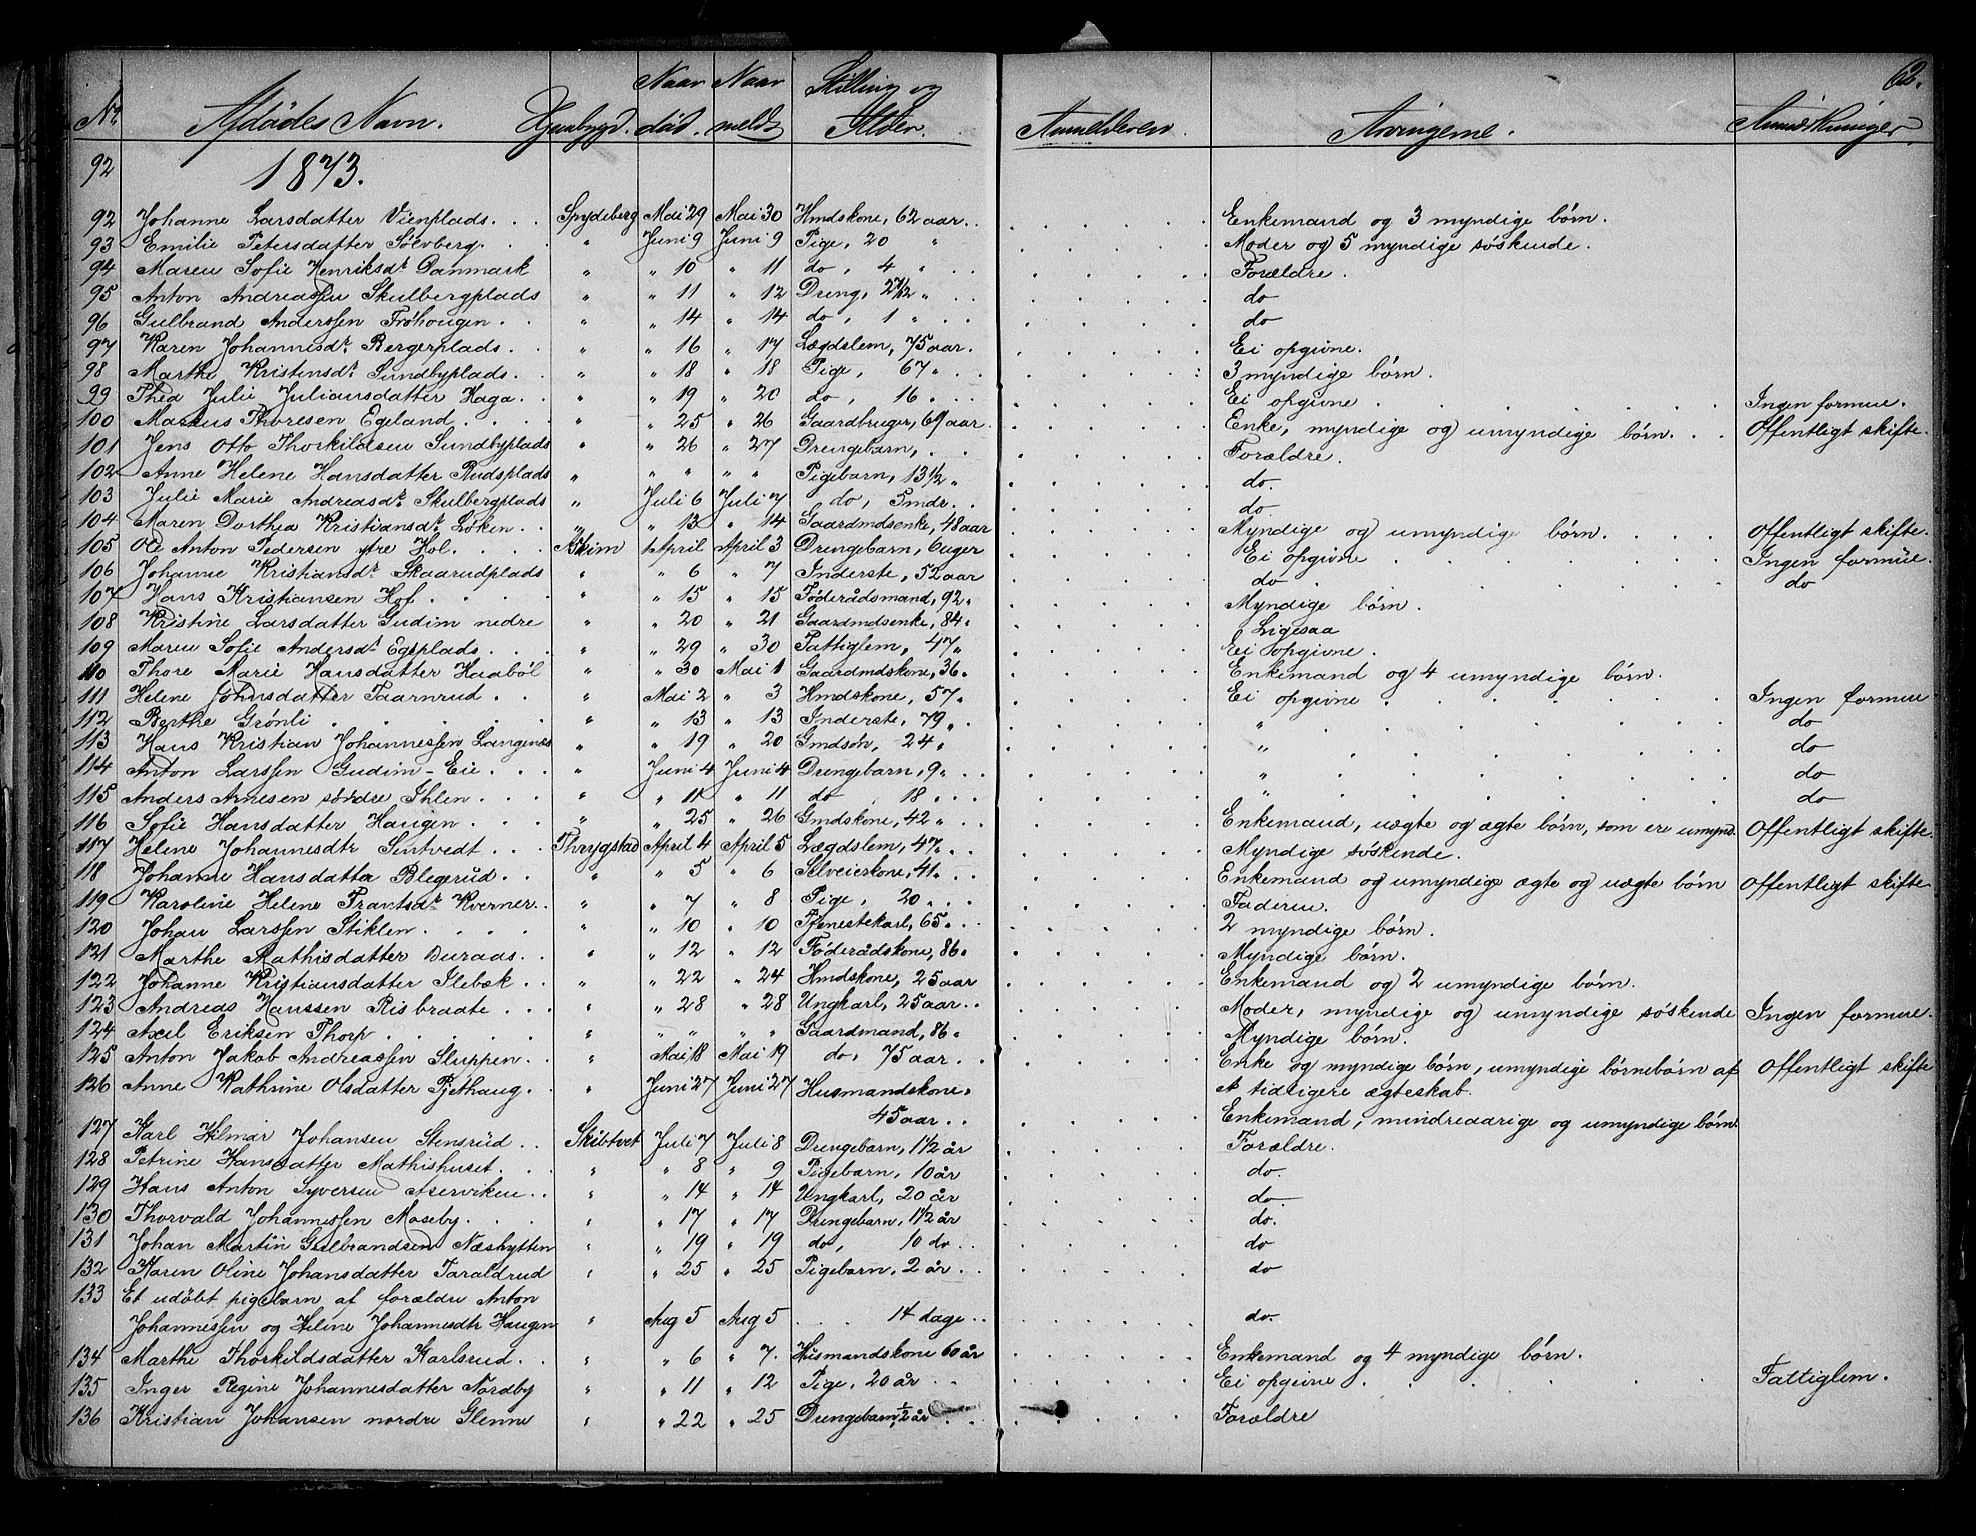 62.
Nr. Afdødes Navn. Hjembygd. Naar død. Naar meldt Stilling og Alder. Anmelderen. Arvingerne. Anmærkninger
92 1873.
92 Johanne Larsdatter Vienplads. Spydeberg Mai 29 Mai 30 Hmdskone, 62 aar. Enkemand og 3 myndige børn.
93 Emilie Petersdatter Sølvberg. " Juni 9 Juni 9 Pige, 20 " Moder og 5 myndige søskende.
94 Maren Sofie Henriksdr Danmark " " 10 " 11 do, 4 " Forældre.
95 Anton Andreassen Skulbergplads " " 11 " 12 Dreng, " do
96 Gulbrand Anderssen Frøhougen. " " 14 " 14 do, 1 " do
97 Karen Johannesdr. Bergerplads. " " 16 " 17 Lægdslem, 75 aar. Ei opgivne.
98 Marthe Kristensdr. Sundbyplads. " " 18 " 18 Pige, 67 " 3 myndige børn.
99 Thea Julie Juliansdatter Haga. " " 19 " 20 do, 16 " Ei opgivne Ingen formue.
100 Markus Thoresen Egeland. " " 25 " 26 Gaardbruger, 69 aar. Enke, myndige og umyndige børn. Offentligt skifte.
101 Jens Otto Thorkildsen Sundbyplads " " 26 " 27 Drengebarn, Forældre.
102 Anne Helene Hansdatter Rudsplads " " " " " Pigebarn, 13 1/2 " do.
103 Julie Marie Andreasdr. Skulbergplads " Juli 6 Juli 7 do, 5 mdr. do.
104 Maren Dorthea Kristiansdr. Løken. " " 13 " 14 Gaardmdsenke, 48 aar Myndige og umyndige børn. Offentligt skifte.
105 Ole Anton Pedersen ytre Hol. Askim 1 April April 3 Drengebarn, 6 uger Ei opgivne Ingen formue.
106 Johanne Kristiansdr. Skaarudplads " " 6 " 7 Inderste, 52 aar do do
107 Hans Kristiansen Hof. " " 15 " 15 Føderådsmand, 92 " Myndige børn.
108 Kristine Larsdatter Gudim nedre " " 20 " 21 Gaardmdsenke, 84 " Ligesaa
109 Maren Sofie Andersdr. Egeplads. " " 29 " 30 Fattiglem, 47 " Ei opgivne.
110 Thore Marie Hansdatter Haabøl " " 30 Mai 1 Gaardmdskone, 36 " Enkemand og 4 umyndige børn.
111 Helene Johnsdatter Taarnrud. " Mai 2 " 3 Hmdskone, 57 " Ei opgivne Ingen formue
112 Berthe Grønli " " 13 " 13 Inderste, 79 " " do
113 Hans Kristian Johannessen Langenæs " " 19 " 20 Gmdsøn, 24 " " do
114 Anton Larssen Gudim-Eie. " Juni 4 Juni 4 Drengebarn, 9 " " do
115 Anders Arnesen søndre Ihlen. " " 11 " 11 do, 18 " " do
116 Sofie Hansdatter Haugen. " " 25 " 26 Gmdskone, 42 " Enkemand, uægte og ægte børn, som er umynd. Offentligt skifte.
117 Helene Johannesdtr Sentvedt. Thrygstad April 4 April 5 Lægdslem, 47 " Myndige søskende.
18 Johanne Hansdatter Blegerud. " " 5 " 6 Selveierkone, 41 " Enkemand og umyndige ægte og uægte børn Offentligt skifte.
119 Karoline Helene Frantsdr. Kverner. " " 7 " 8 Pige, 20 Faderen.
120 Johan Larssen Stiklen. " " 10 " 10 65 " 2 myndige børn.
121 Marthe Mathisdatter Buraas. " " 12 " 12 Føderådskone, 86 " Myndige børn.
122 Johanne Kristiansdatter Ilebæk. " " 22 " 24 Hmdskone, 25 aar Enkemand og 2 umyndige børn.
123 Andreas Hanssen Risbraate. " " 28 " 28 Ungkarl, 25 aar. Moder, myndige og umyndige søskende Ingen formue.
124 Axel Eriksen Thorp. " " " " " Gaardmand, 86 " Myndige børn.
125 Anton Jakob Andreassen Sluppen. " Mai 18 Mai 19 do, 75 aar Enke og myndige børn, umyndige børnebørn af Offentligt skifte
126 Anne Kathrine Olsdatter Pjethaug. " Juni 27 Juni 27 Husmandskone, et tidligere ægteskab.
45 aar Enkemand, mindreaarige og umyndige børn.
127 Karl Hilmar Johansen Stensrud. Skibtvet Juli 7 Juli 8 Drengebarn, 1 1/2 år Forældre.
128 Petrine Hansdatter Mathishuset. " " 8 " 9 Pigebarn, 10 år do.
129 Hans Anton Syversen Aserviken. " " 14 " 14 Ungkarl, 20 år do
130 Thorvald Johannessen Moseby. " " 17 " 17 Drengebarn, 1 1/2 år do.
131 Johan Martin Gulbrandsen Næshytten " " 19 " 19 do, 10 do. do
132 Karen Oline Johansdatter Taraldrud " " 25 " 25 Pigebarn, 2 år. do
133 Et udøbt pigebarn af forældre Anton
Johannessen og Heline Johannesdtr Haugen " Aug 5 Aug 5 14 dage do.
134 Marthe Thorkildsdatter Karlsrud. " " 6 " 7. Husmandskone 60 år Enkemand og 4 myndige børn.
135 Inger Regine Johannesdatter Nordby " " 11 " 12 Pige, 20 år Ei opgivne. Fattiglem.
136 Kristian Johansen nordre Glenne " " 22 " 25 Drengebarn, 1/2 år Forældre